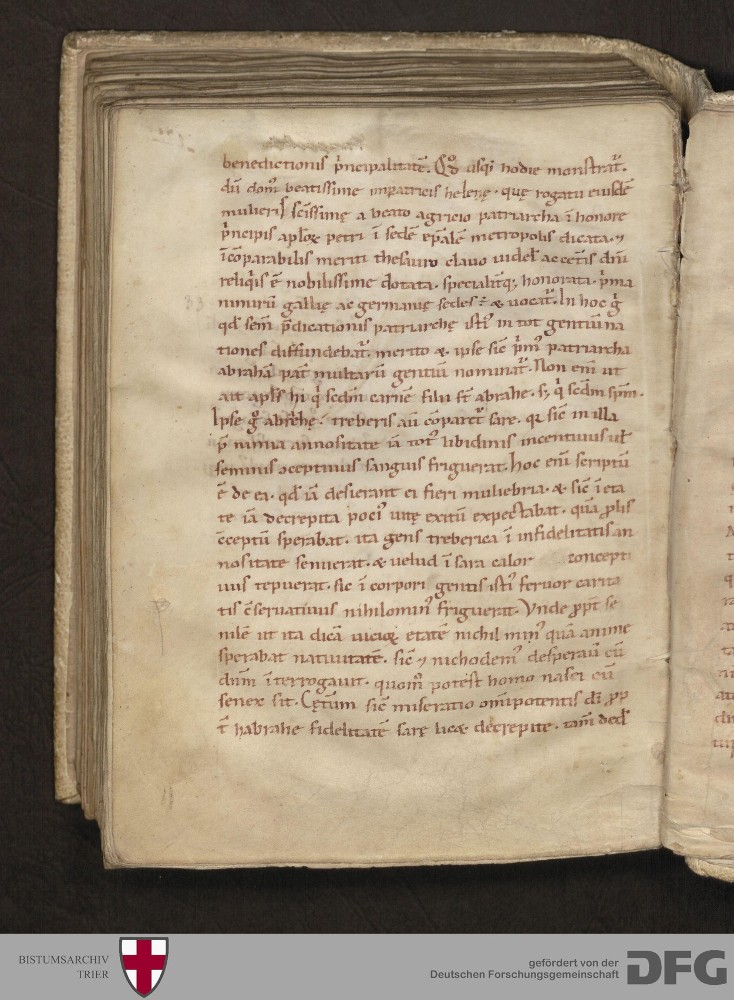 benedictionis p̄ncipalitatē. Qđ usq; hodie monstrat᷑.
dū domꝰ beatissime impatricis helenę. quę rogatu eiusdē
mulieris sc̄issimę a beato agricio patriarcha ī honore
p̄ncipis aploꝝ petri ī sedē ep̄alē metropolis dicata. ⁊
īcōparabilis meriti thesauro clauo uidel᷑ ac cet̄is dn̄i
reliq̇is ē nobilissime dotata. specialit̄q; honorata. p̄ma
nimirū gallię ac germanię sedes ē & uocat᷑. In hoc g̊
qđ sem̄ p̄dicationis patriarchę isti᷒ in tot gentiū na
tiones diffundebat᷑. merito & ipse sic̄ p̄m᷒ patriarcha
abrahā pat̄ multarū gentiū nominat᷑. Non eni᷒ ut
ait apl̄s hi q̇ scd̄m carnē filii st̄ abrahe. s; q̇ scd̄m sp̄m.
Ipse g̊ abrahę. treberis aū cōparat᷑ sare. qa sic̄ in illa
p̄ nimia annositate iā tot᷒ libidinis incentiuus ut
seminis ɔceptiuus sanguis friguerat. hoc eni᷒ scriptū
ē de ea. qđ iā desierant ei fieri muliebria. & sic̄ ī eta
te iā decrepita poci᷒ uitę exitū expectabat. quā ꝓlis
cc̄eptū sperabat. ita gens treberica ī infidelitatis an
nositate senuerat. & uelud ī sara calor concepti
uus tepuerat. sic ī corpori gentis isti᷒ feruor carita
tis c̄seruatiuus nihilomin᷒ friguerat. Vnde ꝓpt̄ se
nilē ut ita dicā uicioꝝ etatē nichil min᷒ quā anime
sperabat natiuitatē. sic̄ ⁊ nichodem᷒ desperauı̄ cū
dn̄m īterrogauit. quom᷒ potest homo nasci cū
senex sit. Cęt̄um sic̄ miseratio om̄ipotentis di᷒ ꝓp
t̄ habrahe fidelitatē sarę licæ decrepite. tam̄ ded᷑
BISTUMSARCHIV
TRIER
gefördert von der
Deutschen Forschungsgemeinschaft
DFG